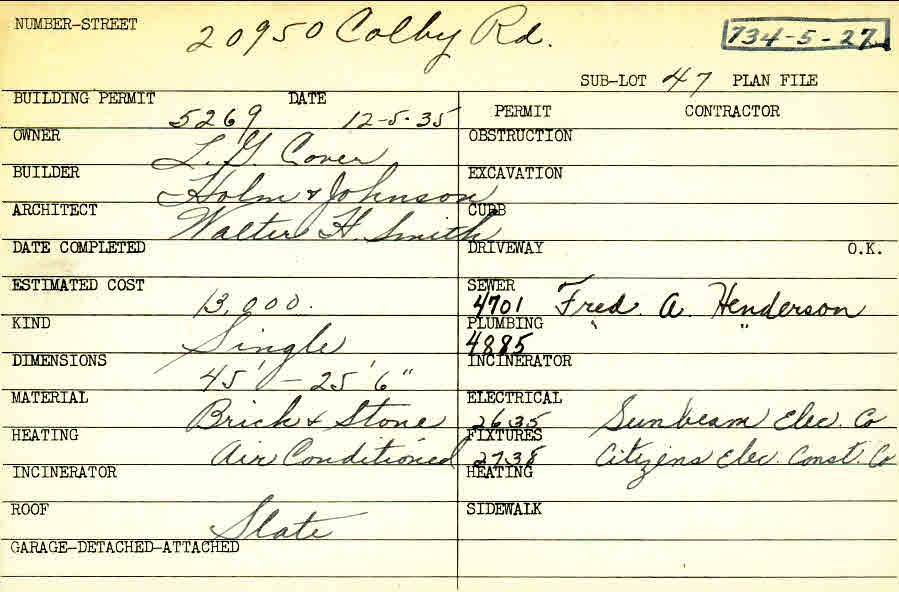 NUMBER-STREET 20950 Colby Rd. 734-5-27
SUB-LOT 47 PLAN FILE
BUILDING PERMIT 5269 DATE 12-5-35
OWNER L. G. Cover
BUILDER Holm & Johnson
ARCHITECT Walter H. Smith
DATE COMPLETED
ESTIMATED COST 13,000.
KIND Single
DIMENSIONS 45' - 25' 6"
MATERIAL Brick & Stone
HEATING Air Conditioned
INCINERATOR
ROOF Slate
GARAGE-DETACHED-ATTACHED
PERMIT CONTRACTOR
OBSTRUCTION
EXCAVATION
CURB
DRIVEWAY O.K.
SEWER 4701 Fred. A. Henderson
PLUMBING 4885 " "
INCINERATOR
ELECTRICAL 2635 Sunbeam Elec. Co
FIXTURES 2738 Citizens Elec. Const. Co
HEATING
SIDEWALK